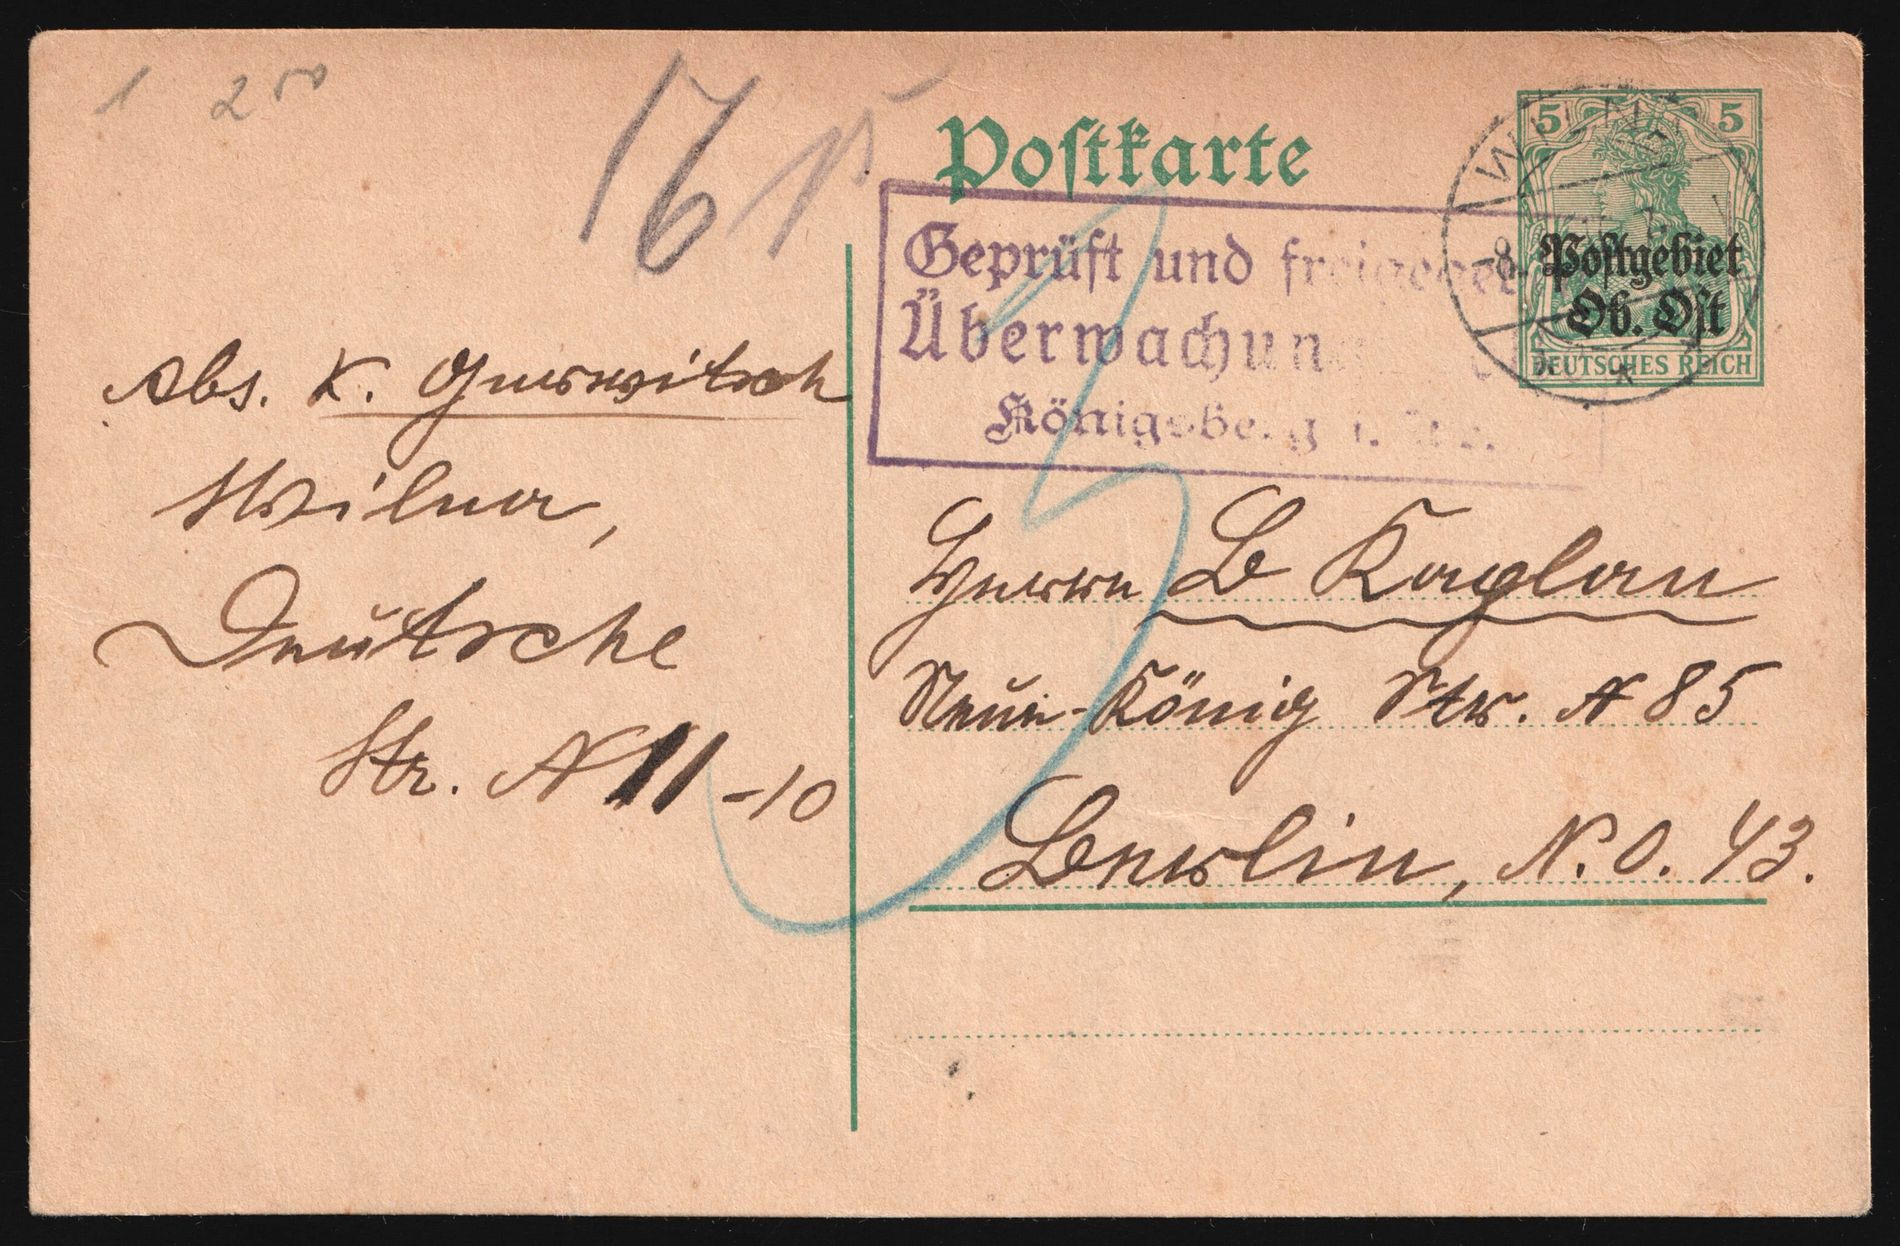 1 2 50
Postkarte
5 5
Postgebiet
Ob. Ost
DEUTSCHES REICH
Geprüft und freigegeben
Überwachung
Königsberg i. Pr.
Abs. K. Gurwitsch
Wilna,
Deutsche
Str. N 11-10
Herrn B Kaplan
Neue-König Str. N 85
Berlin, N.O. 43.